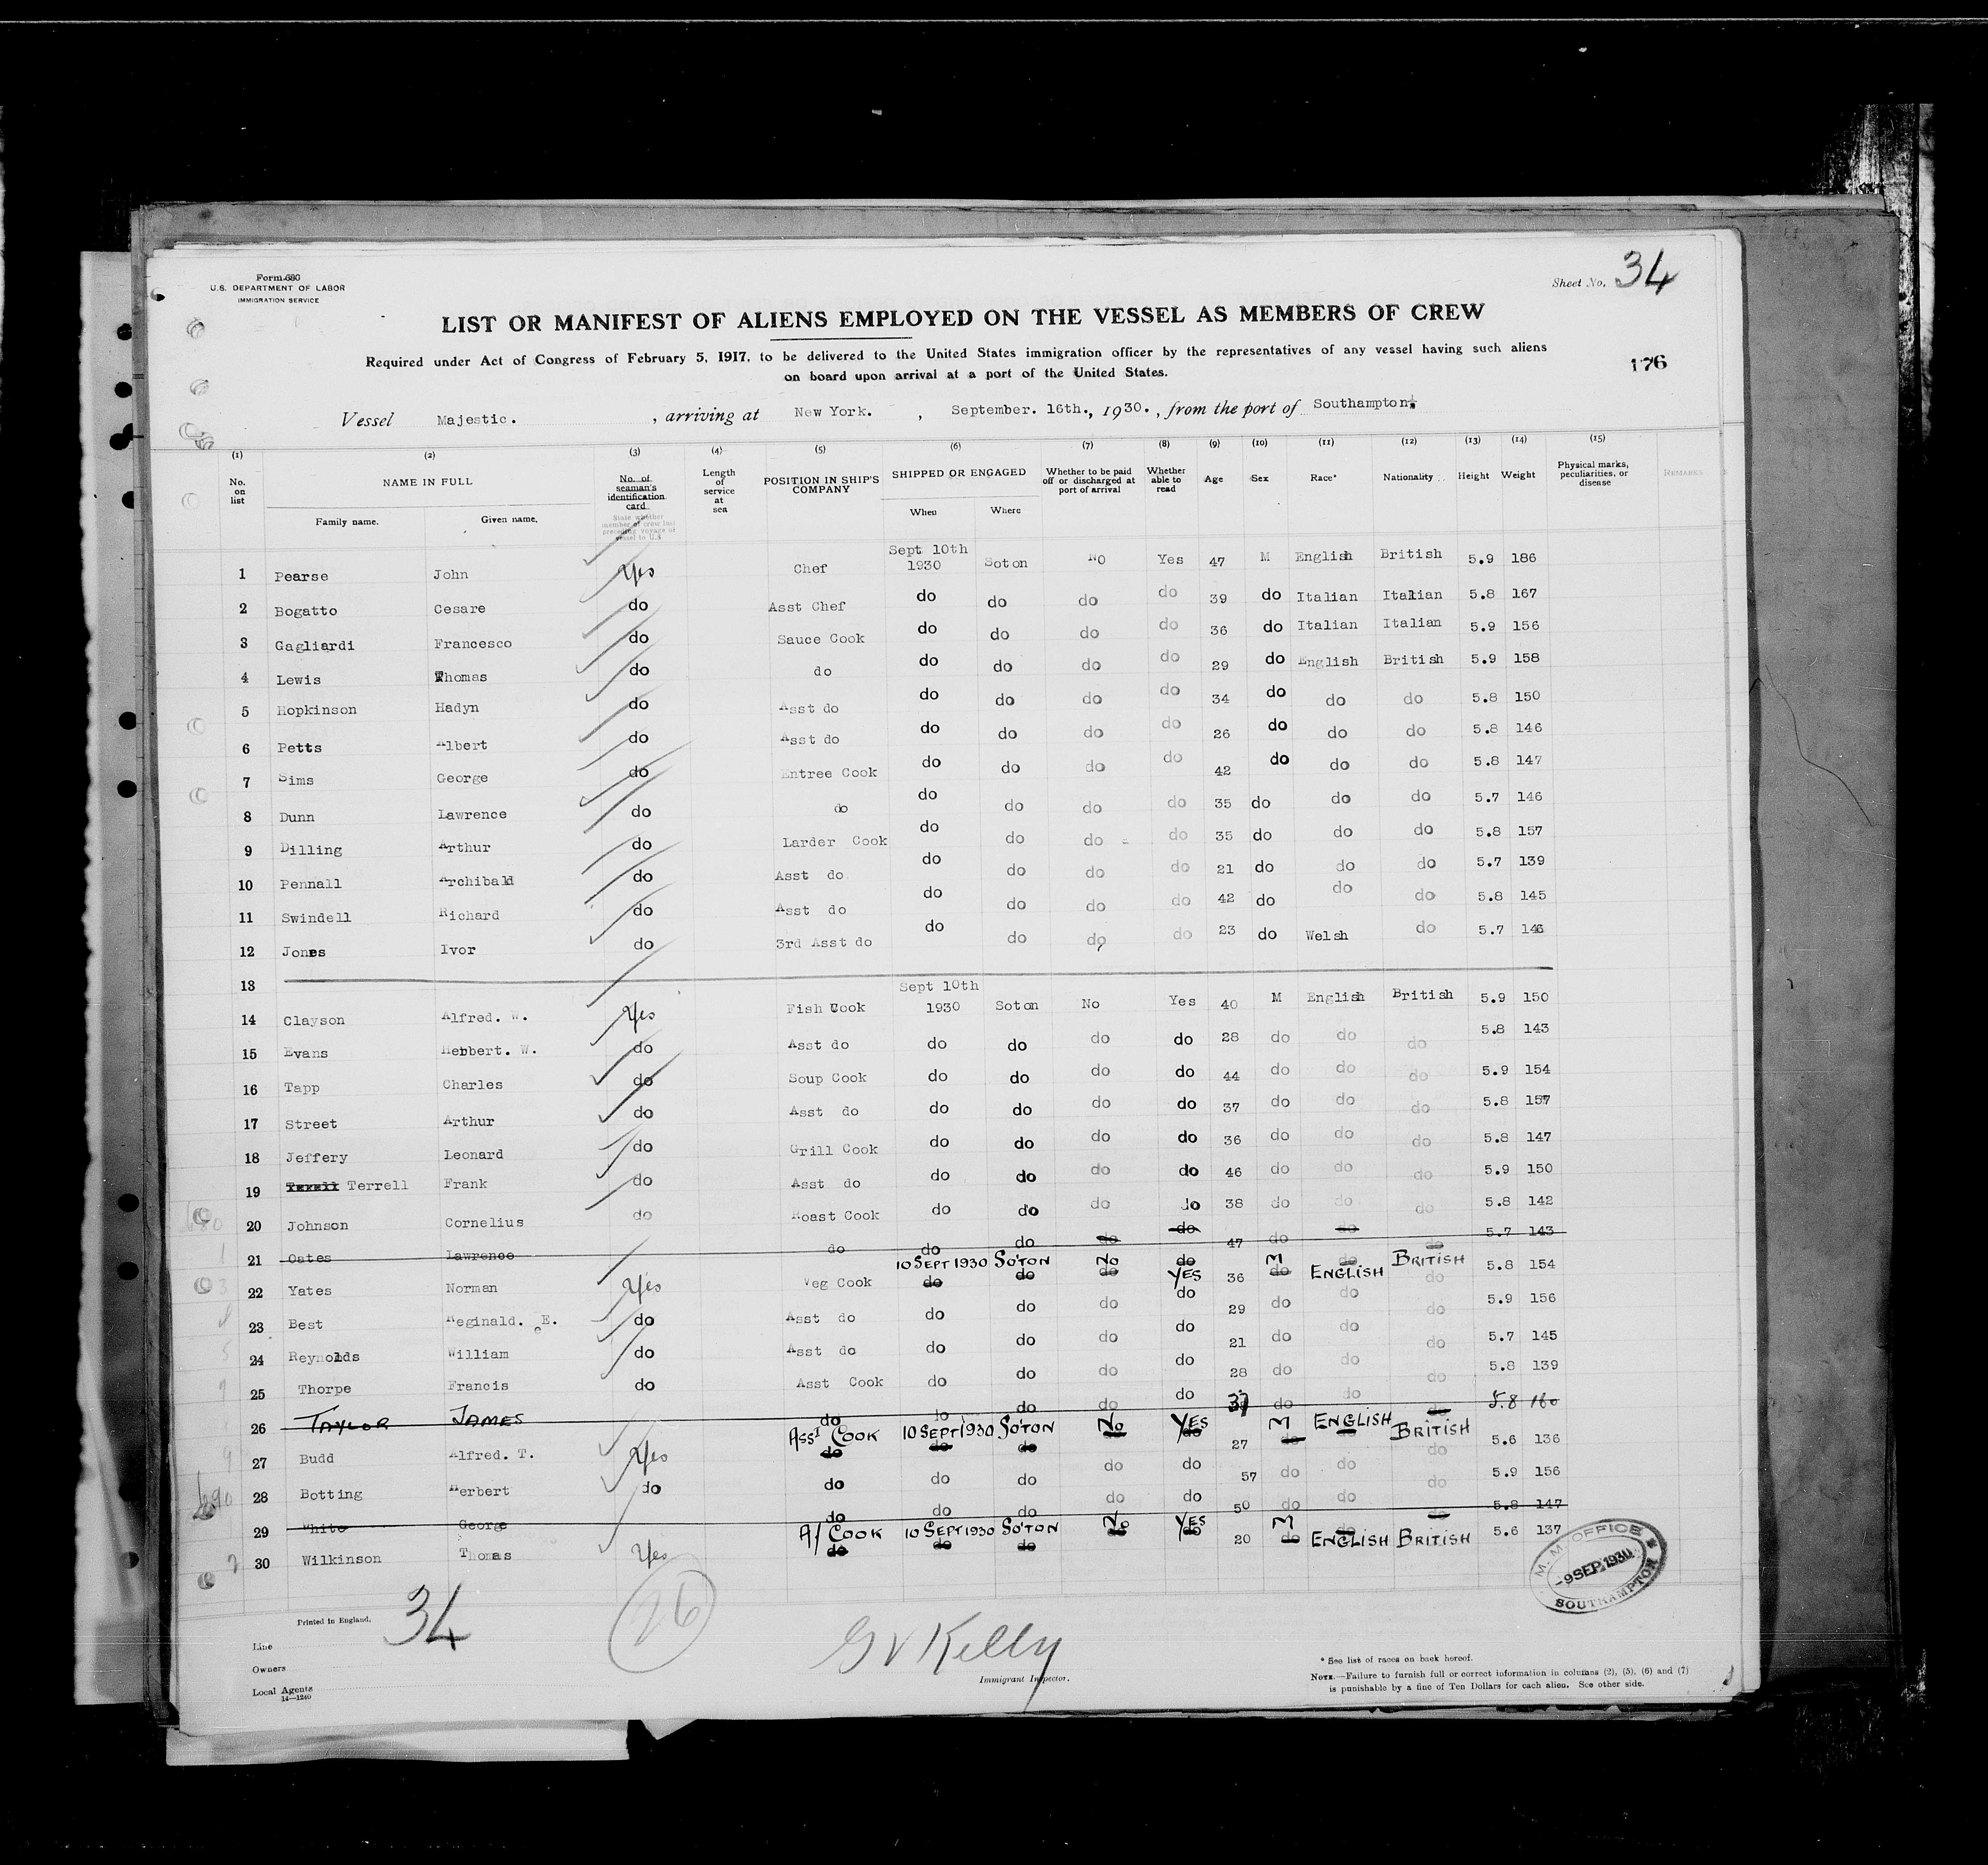 Form 680
U.S. DEPARTMENT OF LABOR
IMMIGRATION SERVICE
Sheet No. 34
LIST OR MANIFEST OF ALIENS EMPLOYED ON THE VESSEL AS MEMBERS OF CREW
Required under Act of Congress of February 5, 1917, to be delivered to the United States immigration officer by the representatives of any vessel having such aliens
on board upon arrival at a port of the United States.
176
Vessel Majestic. , arriving at New York. , September. 16th., 1930. , from the port of Southampton.
(1) (2) (3) (4) (5) (6) (7) (8) (9) (10) (11) (12) (13) (14) (15)
No. on list NAME IN FULL Family name. Given name. No. of seaman's identification card State whether member of crew last preceding voyage of vessel to U.S. Length of service at sea POSITION IN SHIP'S COMPANY SHIPPED OR ENGAGED When Where Whether to be paid off or discharged at port of arrival Whether able to read Age Sex Race* Nationality Height Weight Physical marks, peculiarities, or disease REMARKS
1 Pearse John Yes Chef Sept 10th 1930 Soton No Yes 47 M English British 5.9 186
2 Bogatto Cesare do Asst Chef do do do do 39 do Italian Italian 5.8 167
3 Gagliardi Francesco do Sauce Cook do do do do 36 do Italian Italian 5.9 156
4 Lewis Thomas do do do do do do 29 do English British 5.9 158
5 Hopkinson Hadyn do Asst do do do do do 34 do do do 5.8 150
6 Petts Albert do Asst do do do do do 26 do do do 5.8 146
7 Sims George do Entree Cook do do do do 42 do do do 5.8 147
8 Dunn Lawrence do do do do do do 35 do do do 5.7 146
9 Dilling Arthur do Larder Cook do do do do 35 do do do 5.8 157
10 Pennall Archibald do Asst do do do do do 21 do do do 5.7 139
11 Swindell Richard do Asst do do do do do 42 do do do 5.8 145
12 Jones Ivor do 3rd Asst do do do do do 23 do Welsh do 5.7 146
13
14 Clayson Alfred. W. Yes Fish Cook Sept 10th 1930 Soton No Yes 40 M English British 5.9 150
15 Evans Hebbert. W. do Asst do do do do do 28 do do do 5.8 143
16 Tapp Charles do Soup Cook do do do do 44 do do do 5.9 154
17 Street Arthur do Asst do do do do do 37 do do do 5.8 157
18 Jeffery Leonard do Grill Cook do do do do 36 do do do 5.8 147
19 Terrell Frank do Asst do do do do do 46 do do do 5.9 150
20 Johnson Cornelius do Roast Cook do do do do 38 do do do 5.8 142
21 Oates Lawrence do do do do do 47 do do do 5.7 143
22 Yates Norman Yes Veg Cook 10 SEPT 1930 SO'TON No YES 36 M ENGLISH BRITISH 5.8 154
23 Best Reginald. E. do Asst do do do do do 29 do do do 5.9 156
24 Reynolds William do Asst do do do do do 21 do do do 5.7 145
25 Thorpe Francis do Asst Cook do do do do 28 do do do 5.8 139
26 TAYLOR JAMES do do do do do 37 do do do 5.8 160
27 Budd Alfred. T. Yes ASST COOK 10 SEPT 1930 SO'TON No YES 27 M ENGLISH BRITISH 5.6 136
28 Botting Herbert do do do do do do 57 do do do 5.9 156
29 White George do do do do do 50 do do do 5.8 147
30 Wilkinson Thomas Yes A/ COOK 10 SEPT 1930 SO'TON No YES 20 M ENGLISH BRITISH 5.6 137
M. M. OFFICE
-9 SEP 1930
SOUTHAMPTON
Printed in England.
34
26
Line
Owners
Local Agents
14—1240
G V Kelly
Immigrant Inspector.
* See list of races on back hereof.
NOTE.—Failure to furnish full or correct information in columns (2), (5), (6) and (7)
is punishable by a fine of Ten Dollars for each alien. See other side.